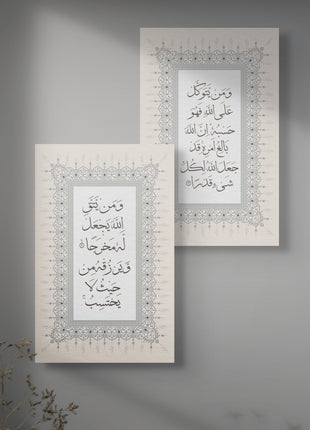 ومن يتوكل
على الله فهو
حسبه إن الله
بالغ أمره قد
جعل الله لكل
شيء قدرا
ومن يتق
الله يجعل
له مخرجا
ويرزقه من
حيث لا
يحتسب